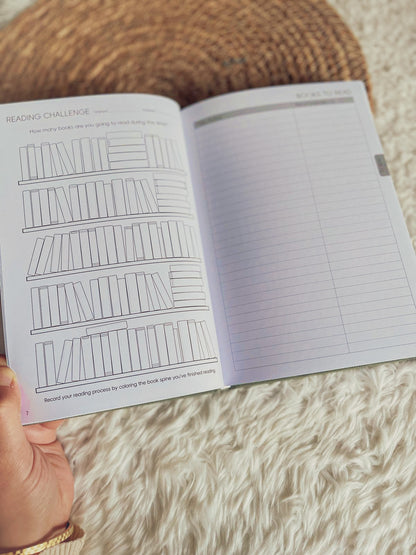 READING CHALLENGE
How many books are you going to read during this time?
Record your reading process by coloring the book spine you've finished reading.
7
BOOKS TO READ